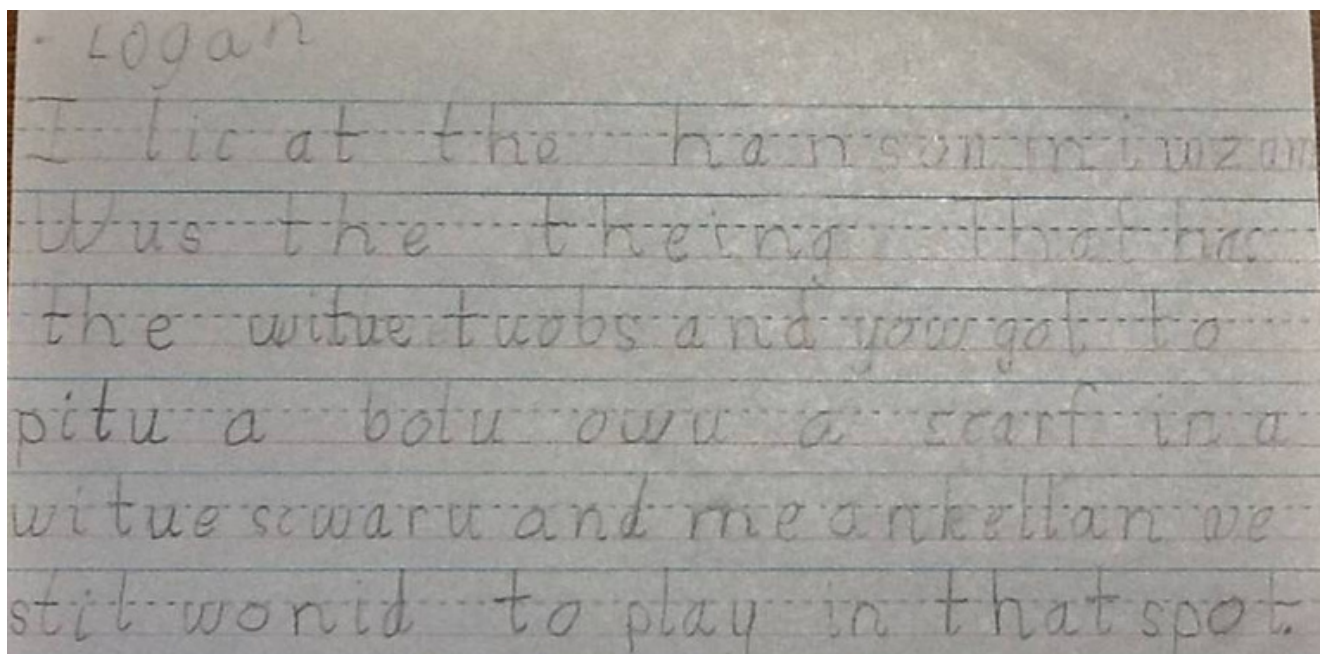 - Logan
I lic at the hanson miwzam
Wus the theing that has
the witue tuobs and yow got to
pitu a botu owu a scarf in a
witue scwaru and me an kellan we
stil wonid to play in that spot.